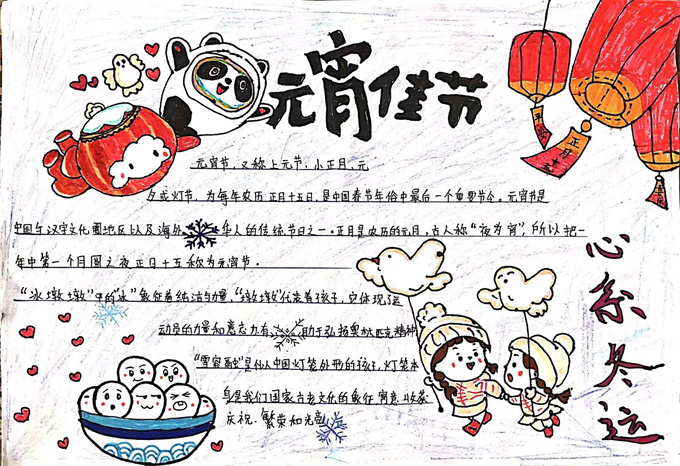 元宵佳节
元宵节，又称上元节、小正月、元
夕或灯节，为每年农历正月十五日，是中国春节年俗中最后一个重要节令。元宵节是
中国与汉字文化圈地区以及海外华人的传统节日之一。正月是农历的元月，古人称“夜为宵”，所以把一
年中第一个月圆之夜正月十五称为元宵节。
“冰墩墩”中的“冰”象征着纯洁与力量，“墩墩”代表着孩子，它体现了运
动员的力量和意志力有助于弘扬奥林匹克精神
“雪容融”是以中国灯笼外形的孩子，灯笼本
身是我们国家古老文化的象征，寓意收获
庆祝、繁荣和光
心系冬运
正月十五